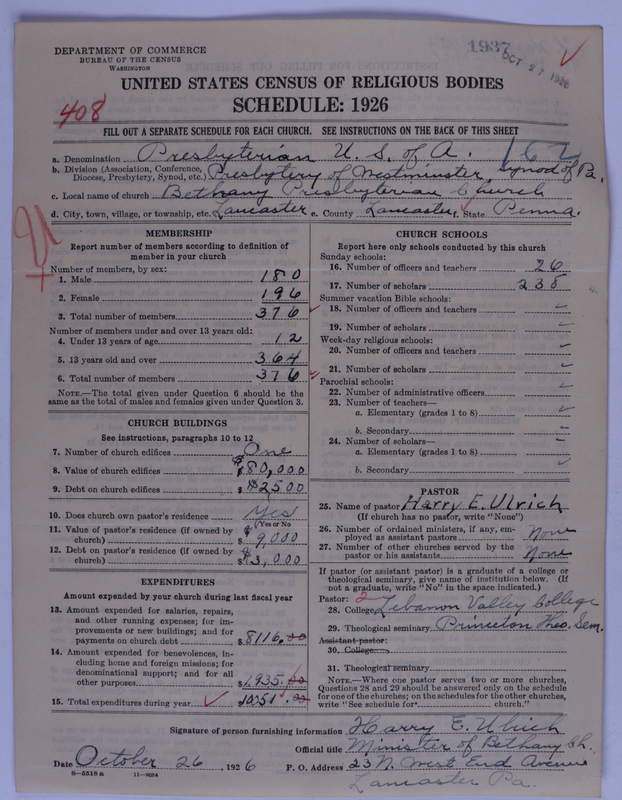 DEPARTMENT OF COMMERCE
BUREAU OF THE CENSUS
WASHINGTON
1937
OCT 27 1926
UNITED STATES CENSUS OF RELIGIOUS BODIES
SCHEDULE: 1926
408
FILL OUT A SEPARATE SCHEDULE FOR EACH CHURCH. SEE INSTRUCTIONS ON THE BACK OF THIS SHEET
a. Denomination Presbyterian U. S. of A. 162
b. Division (Association, Conference, Diocese, Presbytery, Synod, etc.) Presbytery of Westminster, Synod of Pa.
c. Local name of church Bethany Presbyterian Church
d. City, town, village, or township, etc. Lancaster e. County Lancaster f. State Penna.
MEMBERSHIP
Report number of members according to definition of
member in your church
Number of members, by sex:
1. Male 180
2. Female 196
3. Total number of members 376
Number of members under and over 13 years old:
4. Under 13 years of age 12
5. 13 years old and over 364
6. Total number of members 376
NOTE.—The total given under Question 6 should be
same as the total of males and females given under Question 3.
CHURCH BUILDINGS
See instructions, paragraphs 10 to 12
7. Number of church edifices One
8. Value of church edifices $80,000
9. Debt on church edifices $2,500
10. Does church own pastor's residence Yes
(Yes or No)
11. Value of pastor's residence (if owned by
church) $9,000
12. Debt on pastor's residence (if owned by
church) $3,000
EXPENDITURES
Amount expended by your church during last fiscal year
13. Amount expended for salaries, repairs,
and other running expenses; for im-
provements or new buildings; and for
payments on church debt $8116.00
14. Amount expended for benevolences, in-
cluding home and foreign missions; for
denominational support; and for all
other purposes $1,935.00
15. Total expenditures during year 10051.00
CHURCH SCHOOLS
Report here only schools conducted by this church
Sunday schools:
16. Number of officers and teachers 26
17. Number of scholars 238
Summer vacation Bible schools:
18. Number of officers and teachers
19. Number of scholars
Week-day religious schools:
20. Number of officers and teachers
21. Number of scholars
Parochial schools:
22. Number of administrative officers
23. Number of teachers—
a. Elementary (grades 1 to 8)
b. Secondary
24. Number of scholars—
a. Elementary (grades 1 to 8)
b. Secondary
PASTOR
25. Name of pastor Harry E. Ulrich
(If church has no pastor, write "None")
26. Number of ordained ministers, if any, em-
ployed as assistant pastors None
27. Number of other churches served by the
pastor or his assistants None
If pastor (or assistant pastor) is a graduate of a college or
theological seminary, give name of institution below. (If
not a graduate, write "No" in the space indicated.)
Pastor: 2
28. College Lebanon Valley College
29. Theological seminary Princeton Theo. Sem.
Assistant pastor:
30. College
31. Theological seminary
NOTE.—Where one pastor serves two or more churches,
Questions 28 and 29 should be answered only on the schedule
for one of the churches; on the schedules for the other churches,
write "See schedule for church."
Signature of person furnishing information Harry E. Ulrich
Official title Minister of Bethany Ch.
Date October 26, 1926 P. O. Address 23 N. West End Avenue
Lancaster Pa.
8—5518 a 11—9054